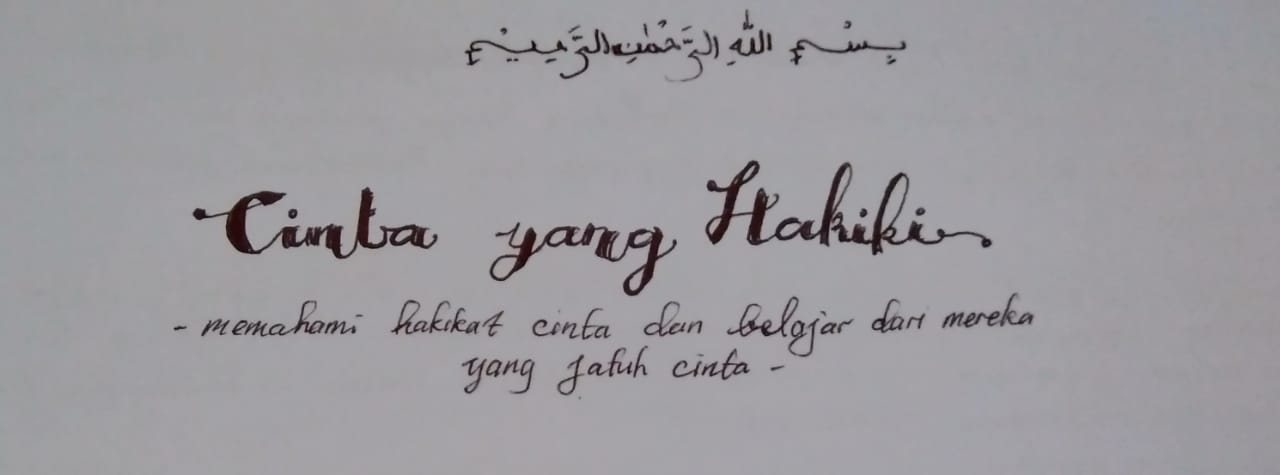 بِسْمِ اللّٰهِ الرَّحْمٰنِ الرَّحِيْمِ
Cinta yang Hakiki
- memahami hakikat cinta dan belajar dari mereka
yang jatuh cinta -